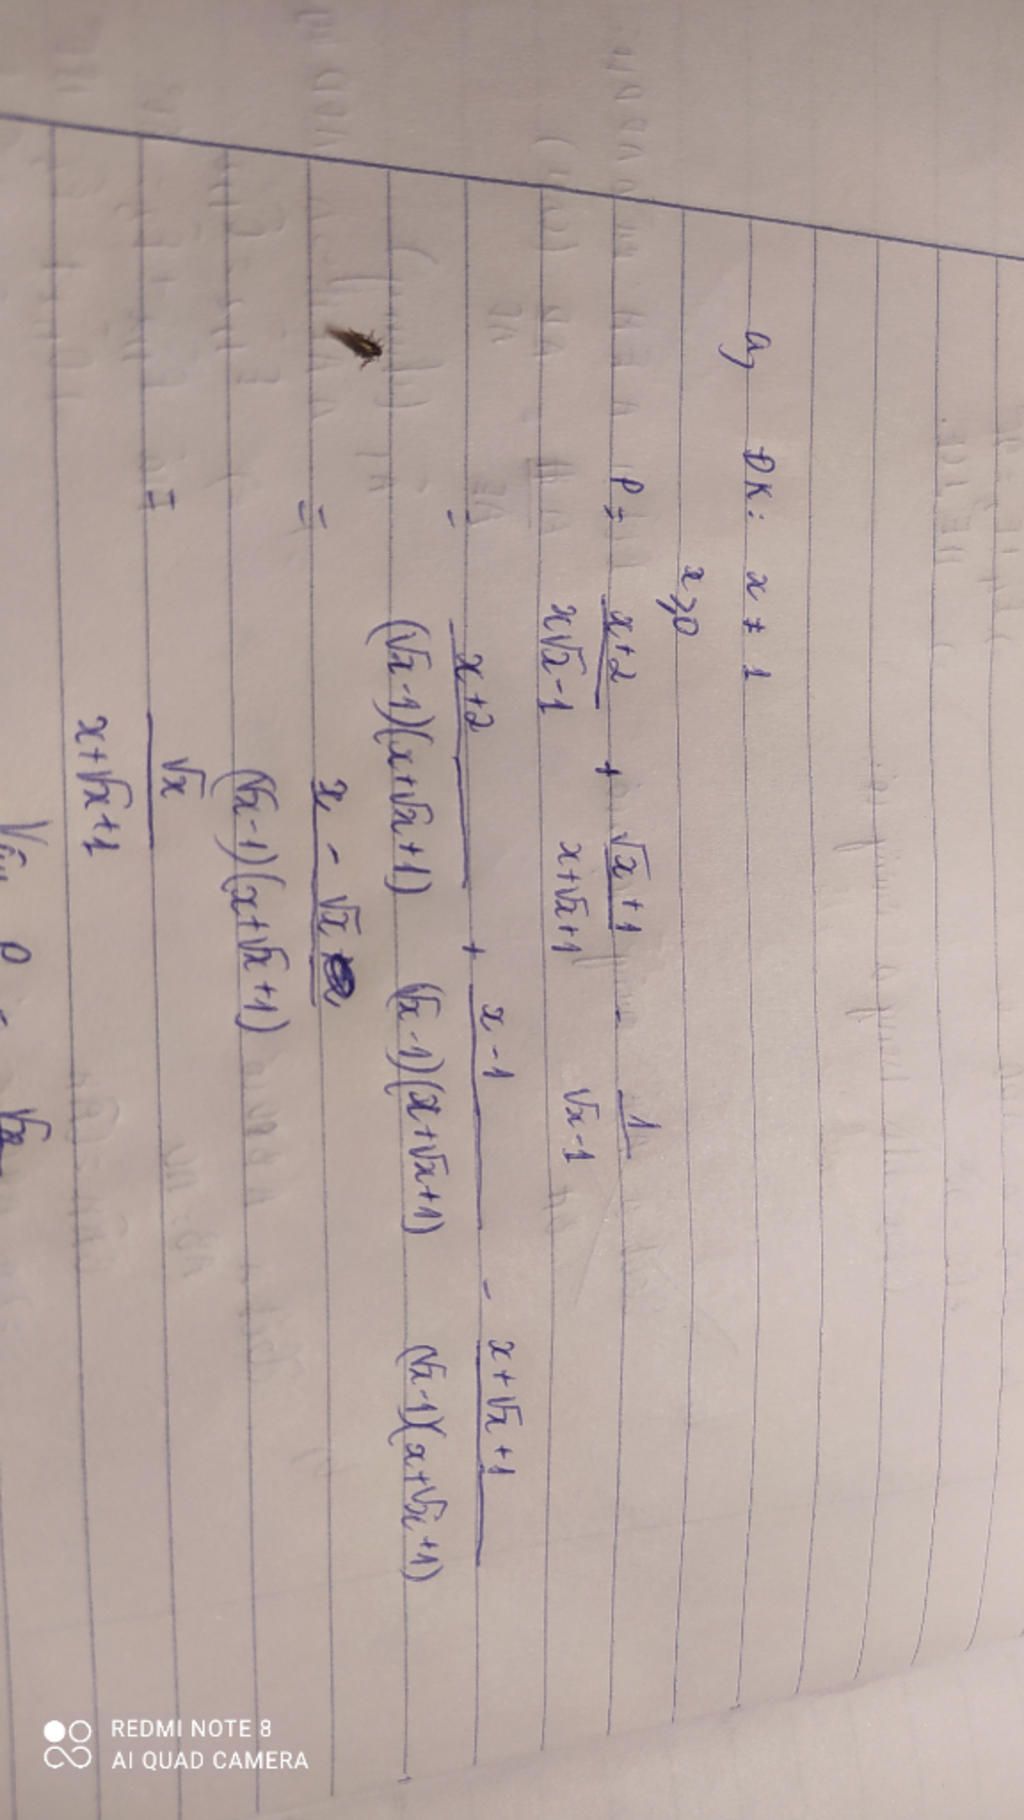 a) ĐK: x ≠ 1
x ⩾ 0
P = x+2 / x√x-1 + √x+1 / x+√x+1 - 1 / √x-1
= x+2 / (√x-1)(x+√x+1) + x-1 / (√x-1)(x+√x+1) - x+√x+1 / (√x-1)(x+√x+1)
= x - √x / (√x-1)(x+√x+1)
= √x / x+√x+1
Vậy P = √x
REDMI NOTE 8
AI QUAD CAMERA